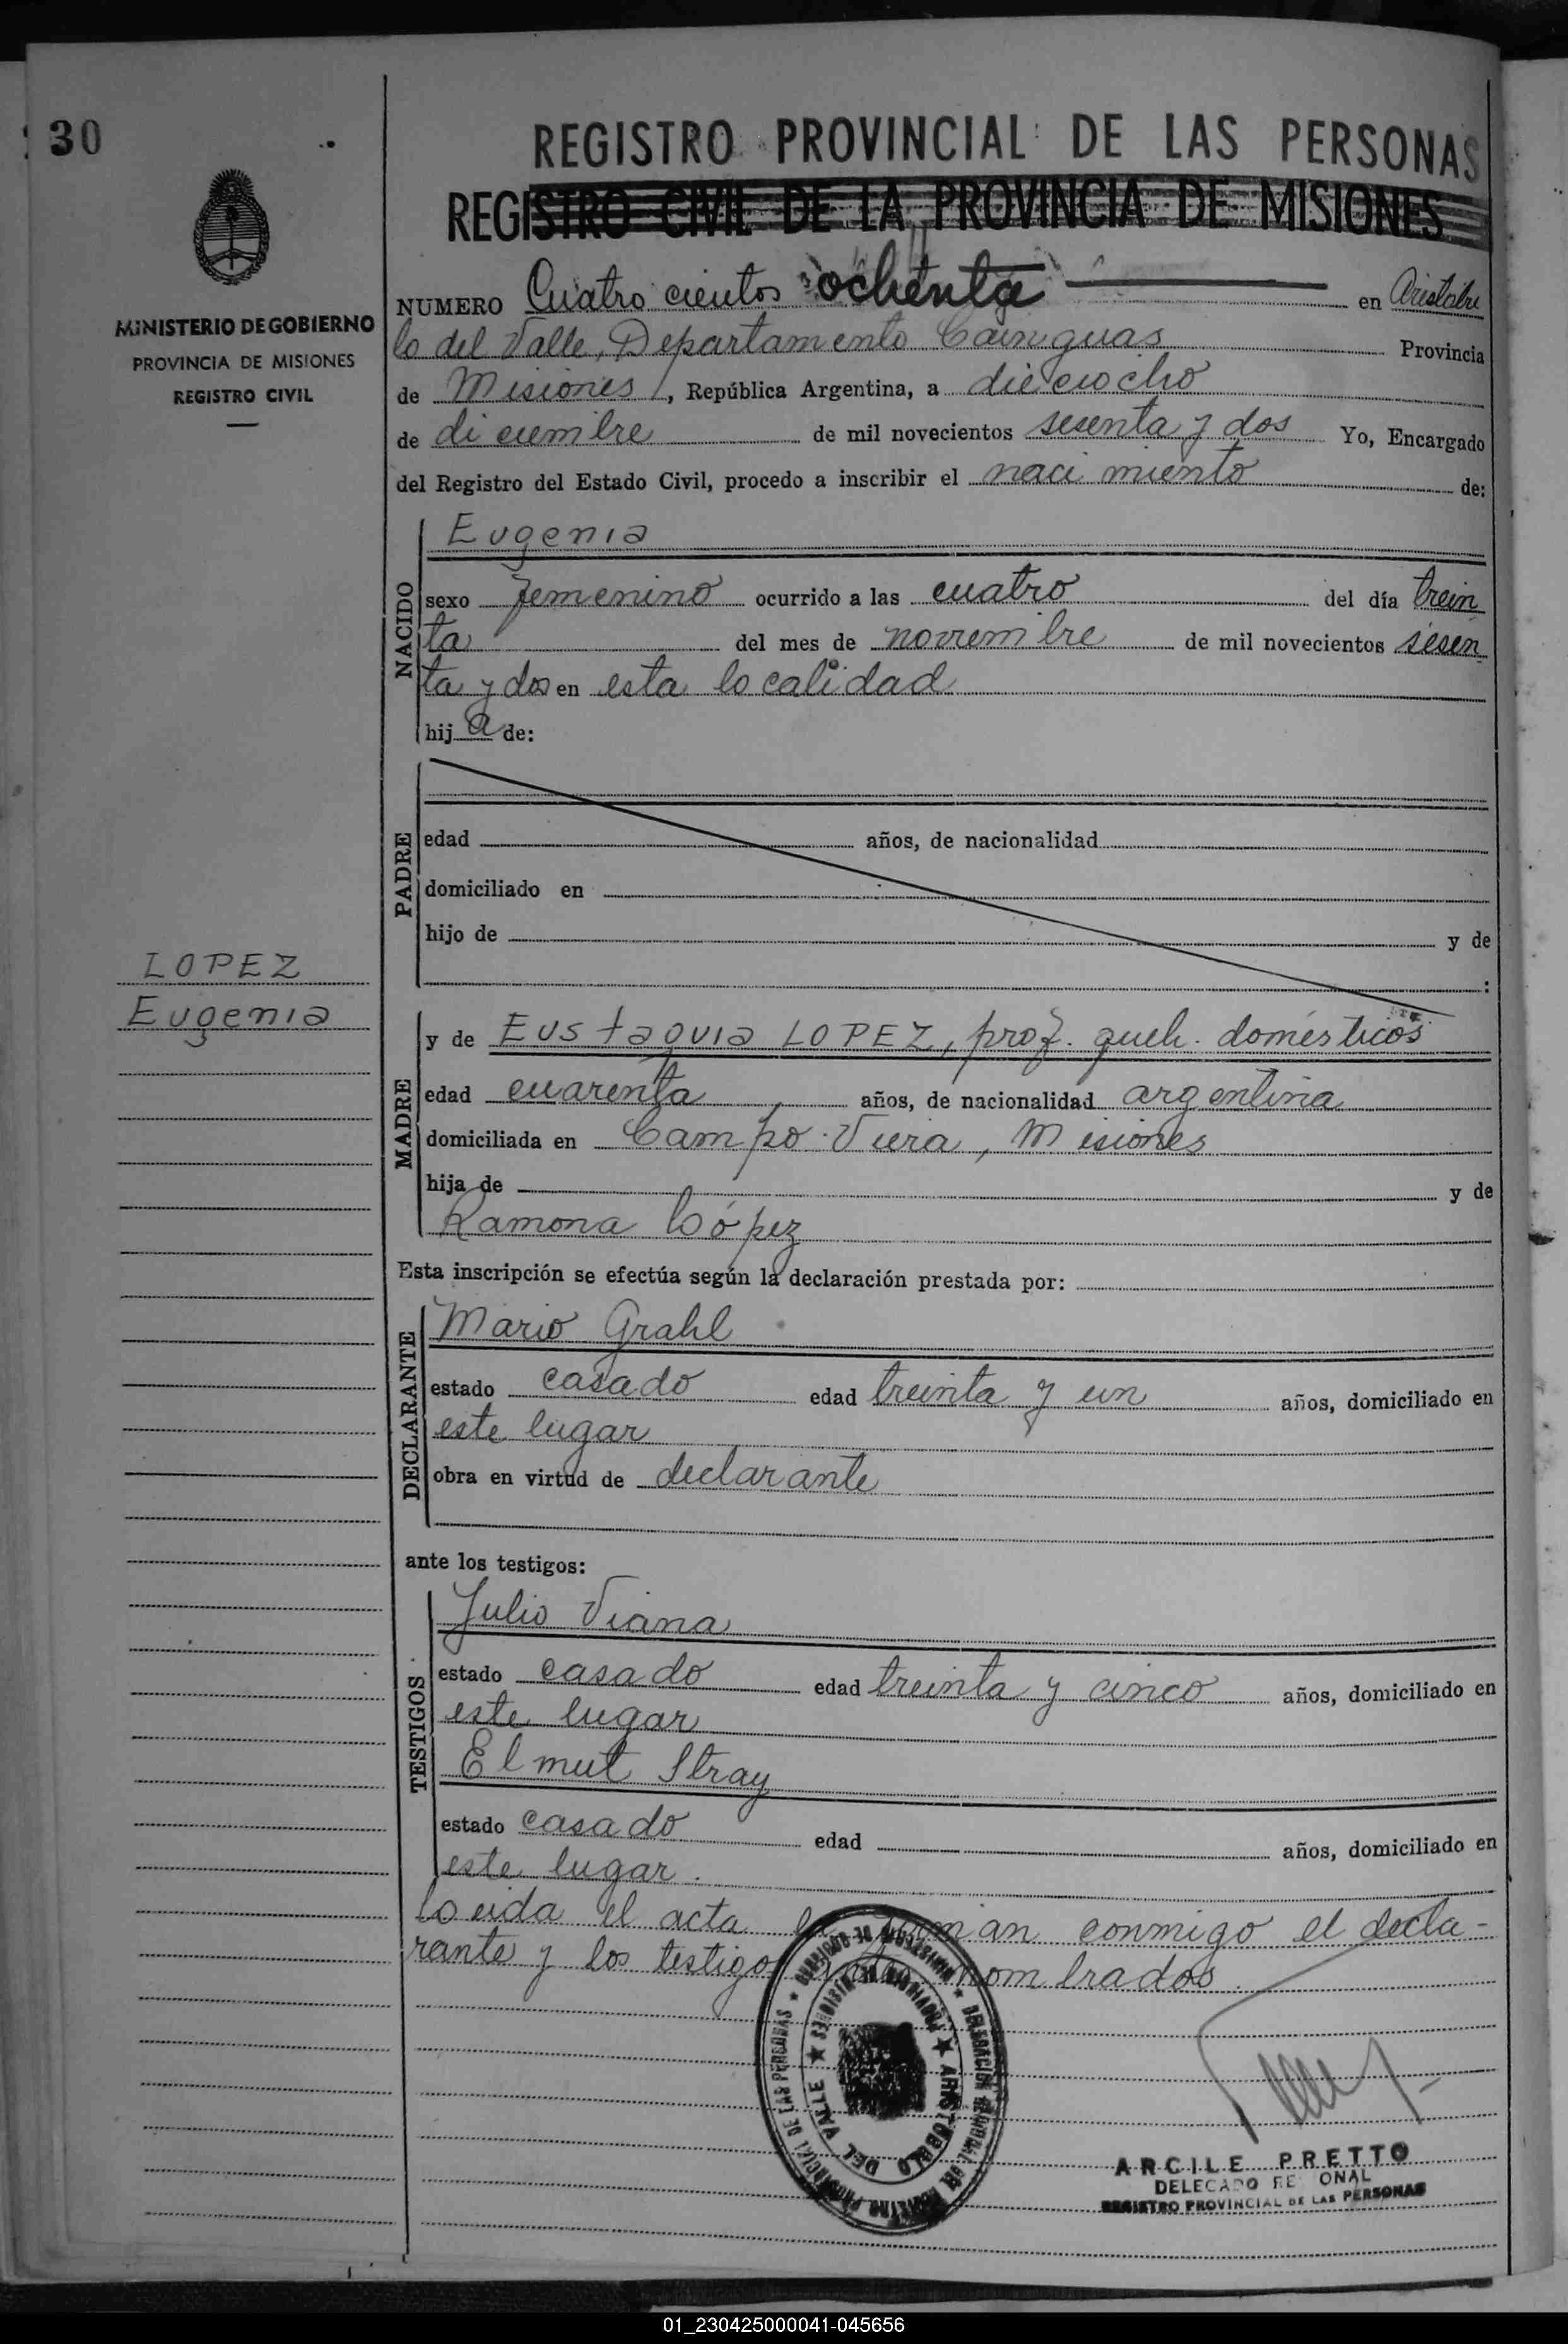 30
REGISTRO PROVINCIAL DE LAS PERSONAS
REGISTRO CIVIL DE LA PROVINCIA DE MISIONES
MINISTERIO DE GOBIERNO
PROVINCIA DE MISIONES
REGISTRO CIVIL
NUMERO Cuatro cientos ochenta en Aristóbu
lo del Valle, Departamento Cainguas Provincia
de Misiones, República Argentina, a dieciocho
de diciembre de mil novecientos sesenta y dos Yo, Encargado
del Registro del Estado Civil, procedo a inscribir el nacimiento de:
NACIDO
Eugenia
sexo femenino ocurrido a las cuatro del día trein
ta del mes de noviembre de mil novecientos sesen
ta y dos en esta localidad
hij a de:
PADRE
edad años, de nacionalidad
domiciliado en
hijo de y de
:
LOPEZ
Eugenia
MADRE
y de Eustaquia LOPEZ, prof. queh. domésticos
edad cuarenta años, de nacionalidad argentina
domiciliada en Campo Viera, Misiones
hija de y de
Ramona López
Esta inscripción se efectúa según la declaración prestada por:
DECLARANTE
Mario Grahl
estado casado edad treinta y un años, domiciliado en
este lugar
obra en virtud de declarante
ante los testigos:
TESTIGOS
Julio Viana
estado casado edad treinta y cinco años, domiciliado en
este lugar
Elmut Stray
estado casado edad años, domiciliado en
este lugar.
Leida el acta la firman conmigo el decla-
rante y los testigos nombrados.
REGISTRO PROVINCIAL DE LAS PERSONAS
PROVINCIA DE MISIONES
ARISTOBULO DEL VALLE
ARCILE PRETTO
DELEGADO RE ONAL
REGISTRO PROVINCIAL DE LAS PERSONAS
01_230425000041-045656